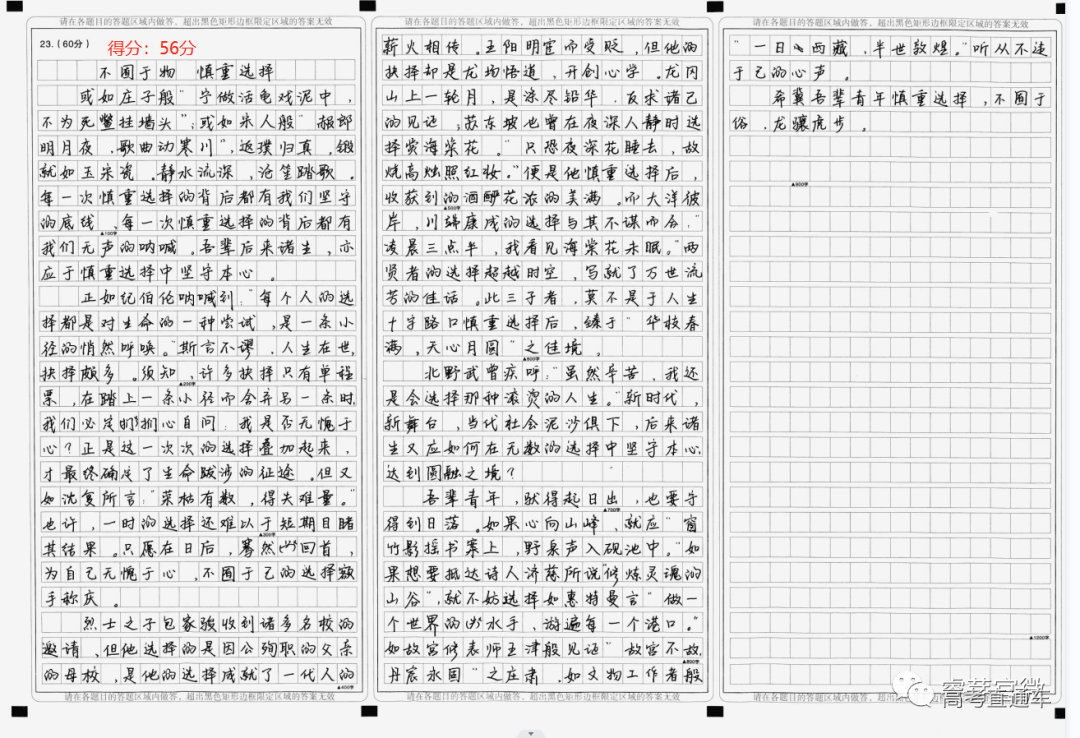 请在各题目的答题区域内做答，超出黑色矩形边框限定区域的答案无效
23.（60分）
得分：56分
不囿于物　慎重选择
或如庄子般“宁做活龟戏泥中，
不为死鳖挂墙头”；或如朱人般“赧郎
明月夜，歌曲动寒川”，返璞归真，锻
就如玉朱瓷。静水流深，沧笙踏歌。
每一次慎重选择的背后都有我们坚守
的底线、每一次慎重选择的背后都有
▲100字
我们无声的呐喊。吾辈后来诸生，亦
应于慎重选择中坚守本心。
正如纪伯伦呐喊到：“每个人的选
择都是对生命的一种尝试，是一条小
径的悄然呼唤。”斯言不谬，人生在世，
抉择颇多。须知，许多抉择只有单程
▲200字
票，在踏上一条小径而舍弃另一条时，
我们必定扪心自问：我是否无愧于
心？正是这一次次的选择叠加起来，
才最终确定了生命跋涉的征途。但又
如沈复所言：“菜枯有数，得失难量。”
也许，一时的选择还难以于短期目睹
▲300字
其结果。只愿在日后，蓦然回首，
为自己无愧于心，不囿于己的选择额
手称庆。
烈士之子包家骏收到诸多名校的
邀请，但他选择的是因公殉职的父亲
的母校，是他的选择成就了一代人的
▲400字
请在各题目的答题区域内做答，超出黑色矩形边框限定区域的答案无效
请在各题目的答题区域内做答，超出黑色矩形边框限定区域的答案无效
薪火相传。王阳明宦而受贬，但他的
抉择却是龙场悟道，开创心学。龙冈
山上一轮月，是涤尽铅华、反求诸己
的见证；苏东坡也曾在夜深人静时选
择赏海棠花。“只恐夜深花睡去，故
烧高烛照红妆。”便是他慎重选择后，
收获到的酒酽花浓的美满。而大洋彼
▲500字
岸，川端康成的选择与其不谋而合：“
凌晨三点半，我看见海棠花未眠。”两
贤者的选择超越时空，写就了万世流
芳的佳话。此三子者，莫不是于人生
十字路口慎重选择后，臻于“华枝春
满，天心月圆”之佳境。
▲600字
北野武曾疾呼：“虽然辛苦，我还
是会选择那种滚烫的人生。”新时代，
新舞台，当代社会泥沙俱下，后来诸
生又应如何在无数的选择中坚守本心，
达到圆融之境？
吾辈青年，驮得起日出，也要守
▲700字
得到日落。如果心向山峰，就应“窗
竹影摇书案上，野泉声入砚池中。”如
果想要抵达诗人济慈所说“修炼灵魂的
山谷”，就不妨选择如惠特曼言“做一
个世界的水手，游遍每一个港口。”
如故宫修表师王津般见证“故宫不故，
▲800字
丹宸永固”之庄肃，如文物工作者般
请在各题目的答题区域内做答，超出黑色矩形边框限定区域的答案无效
请在各题目的答题区域内做答，超出黑色矩形边框限定区域的答案无效
“一日西藏，半世敦煌。”听从不违
于己的心声。
希冀吾辈青年慎重选择，不囿于
俗，龙骧虎步。
▲900字
▲1200字
请在各题目的答题区域内做答，超出黑色矩形边框限定区域的答案无效
高考直通车